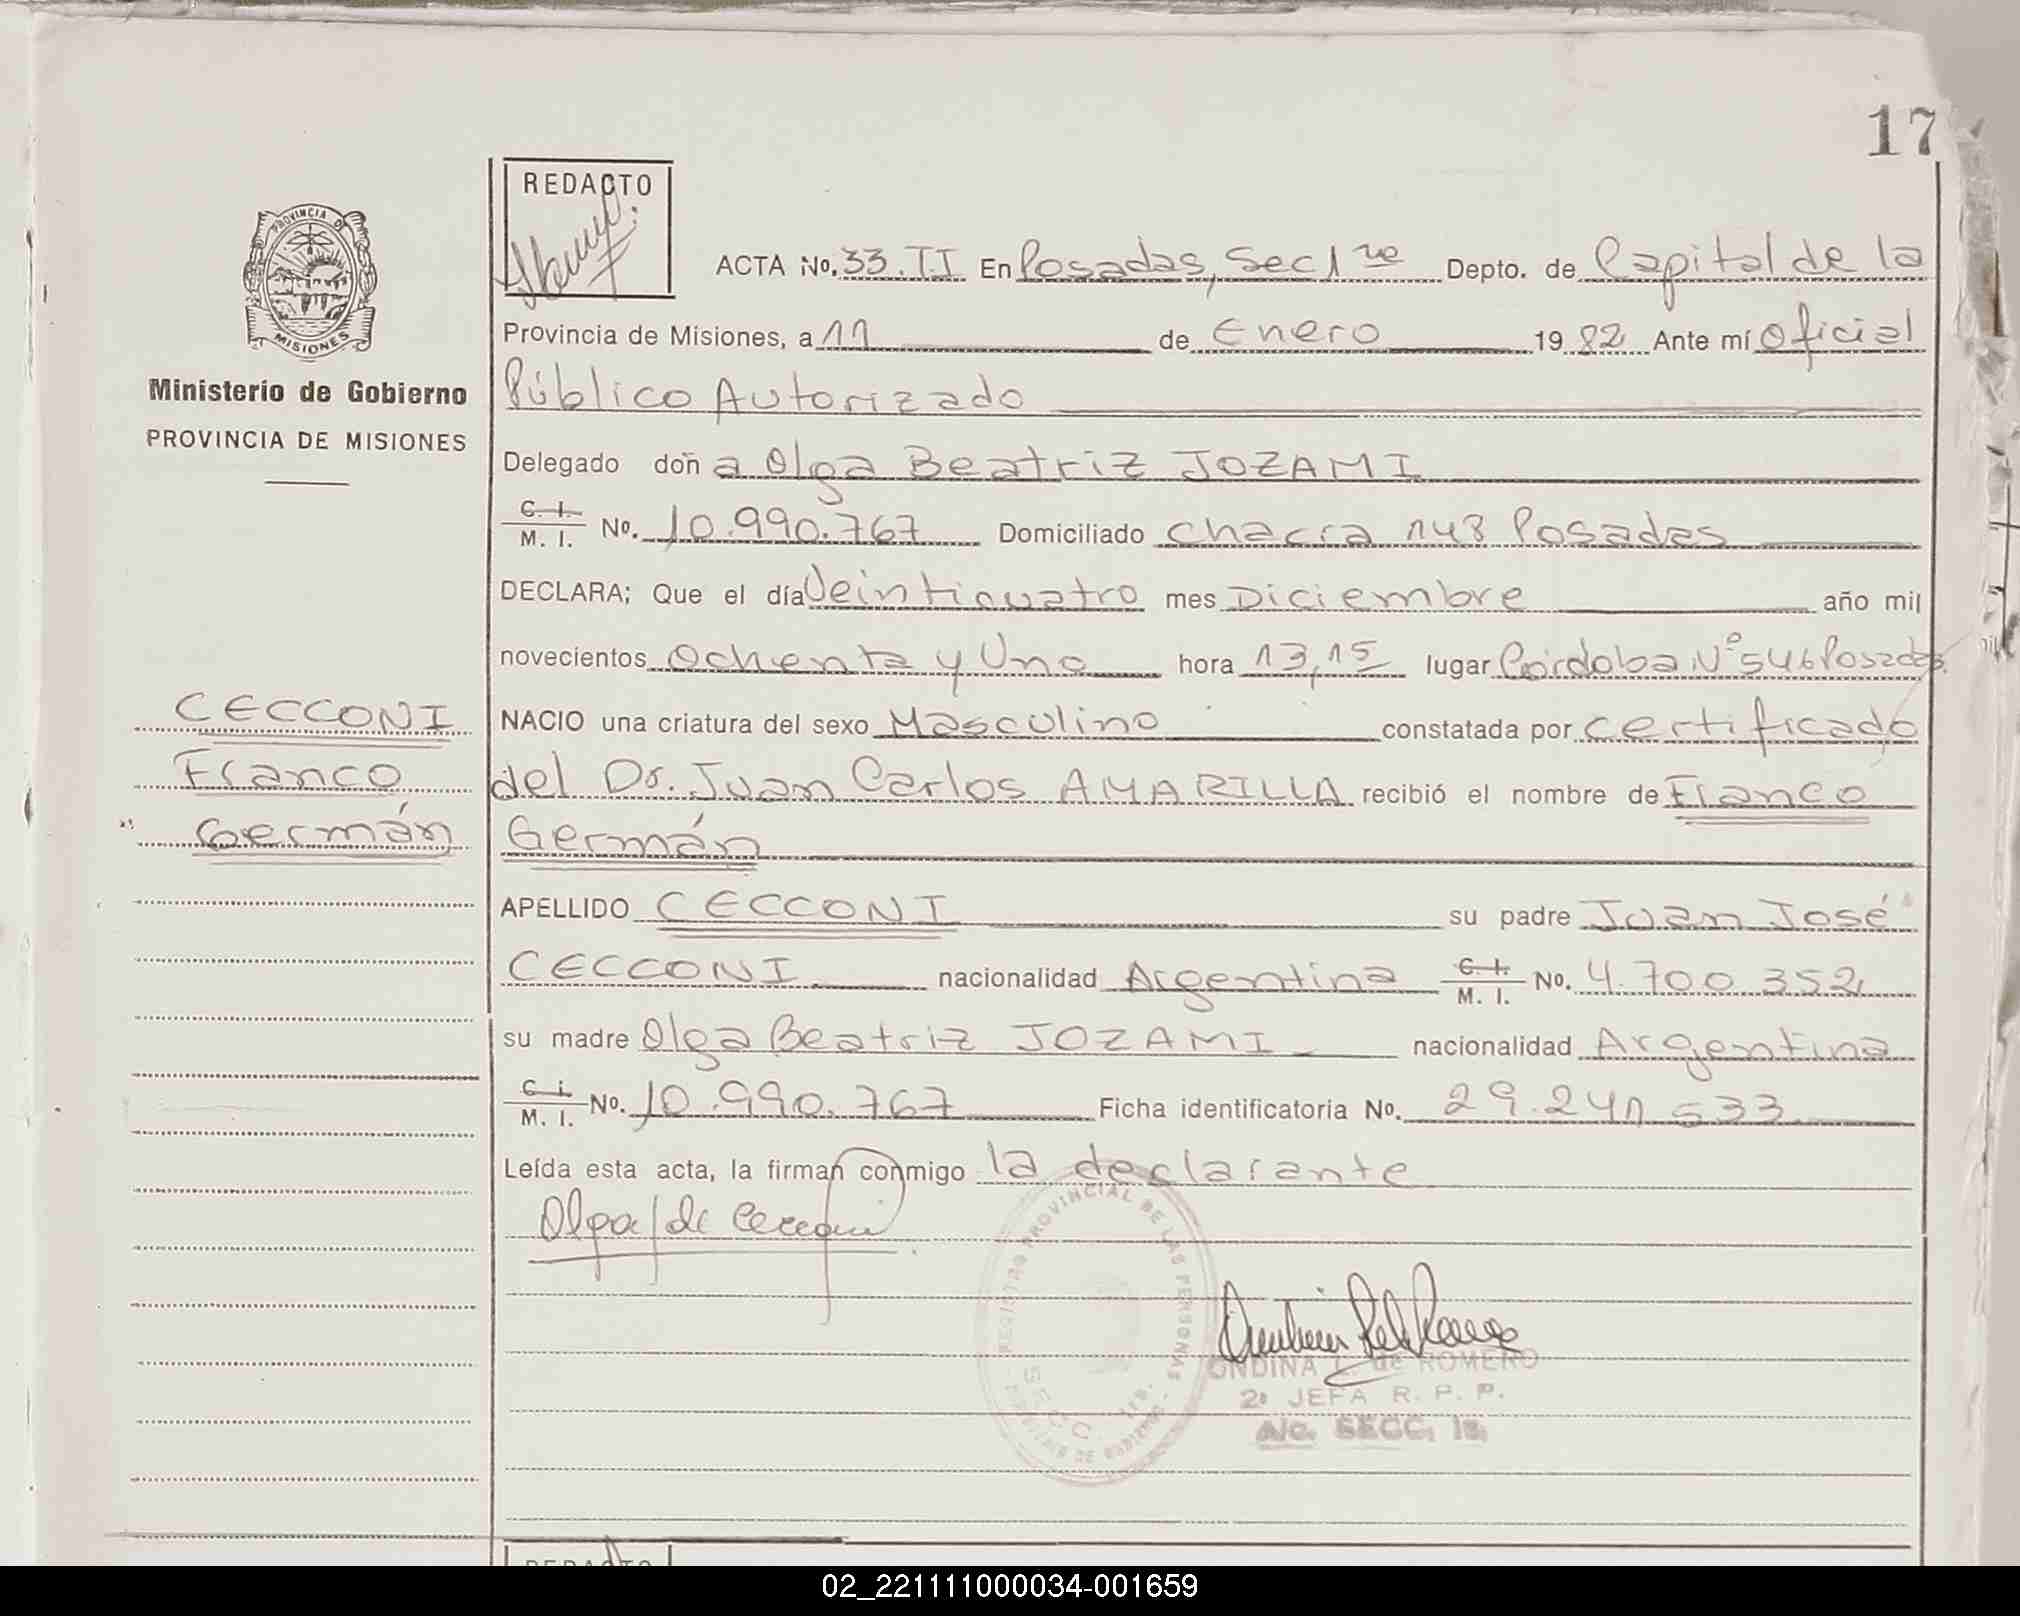 17
REDACTO
PROVINCIA DE
MISIONES
Ministerio de Gobierno
PROVINCIA DE MISIONES
ACTA No. 33. TI En Posadas, Sec 1ra Depto. de Capital de la
Provincia de Misiones, a 11 de Enero 1982 Ante mí Oficial
Público Autorizado
Delegado doña Olga Beatriz JOZAMI
C. I. M. I. No. 10.990.767 Domiciliado Chacra 148 Posadas
DECLARA; Que el día Veintiquatro mes Diciembre año mil
novecientos Ochenta y Uno hora 13,15 lugar Córdoba N° 546 Posadas
CECCONI
NACIO una criatura del sexo Masculino constatada por certificado
Franco
del Dr. Juan Carlos AMARILLA recibió el nombre de Franco
Germán
Germán
APELLIDO CECCONI su padre Juan José
CECCONI nacionalidad Argentina C. I. M. I. No. 4.700.352
su madre Olga Beatriz JOZAMI nacionalidad Argentina
C. I. M. I. No. 10.990.767 Ficha identificatoria No. 29.241.533
Leída esta acta, la firman conmigo la declarante
Olga J de Cecconi
REGISTRO PROVINCIAL DE LAS PERSONAS
SECC. 1ra.
ONDINA L. de ROMERO
2º JEFA R. P. P.
A/C. SECC. 1a
REDACTO
02_221111000034-001659